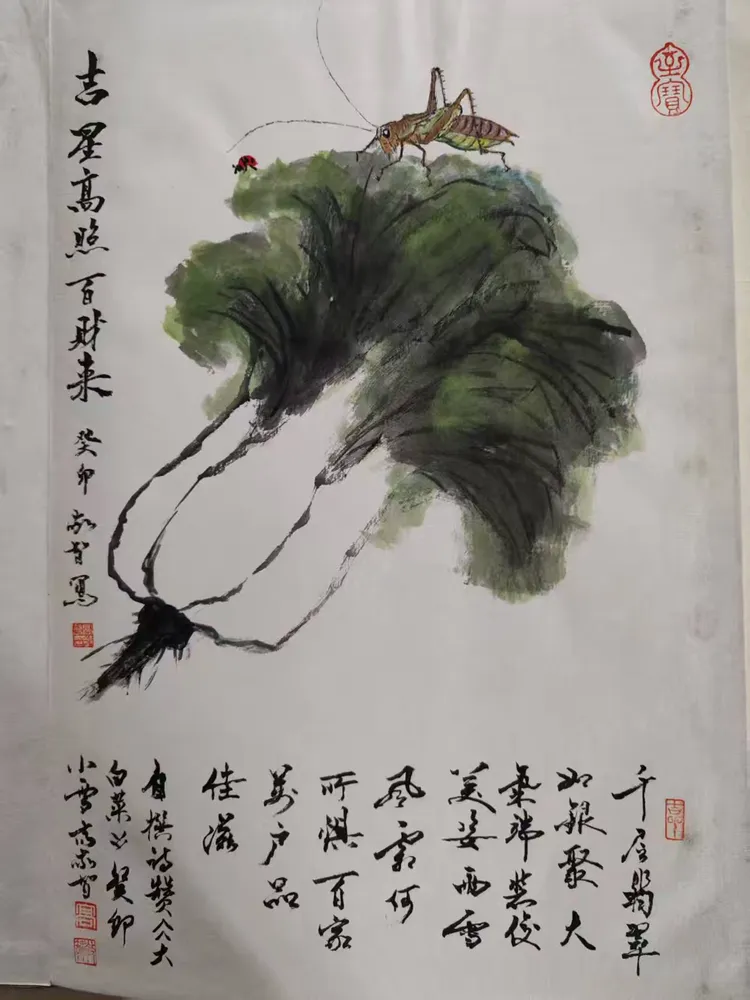 至寶
吉星高照百财来
癸卯 智寫
千层翡翠
如银聚大
氣端莊俊
美姿雨雪
風霜何
所惧百家
萬户品
佳滋
自撰诗赞大
白菜 癸卯
小雪高智